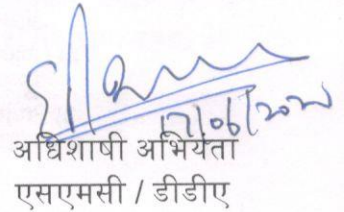 17/06/2022
अधिशाषी अभियंता
एसएमसी / डीडीए